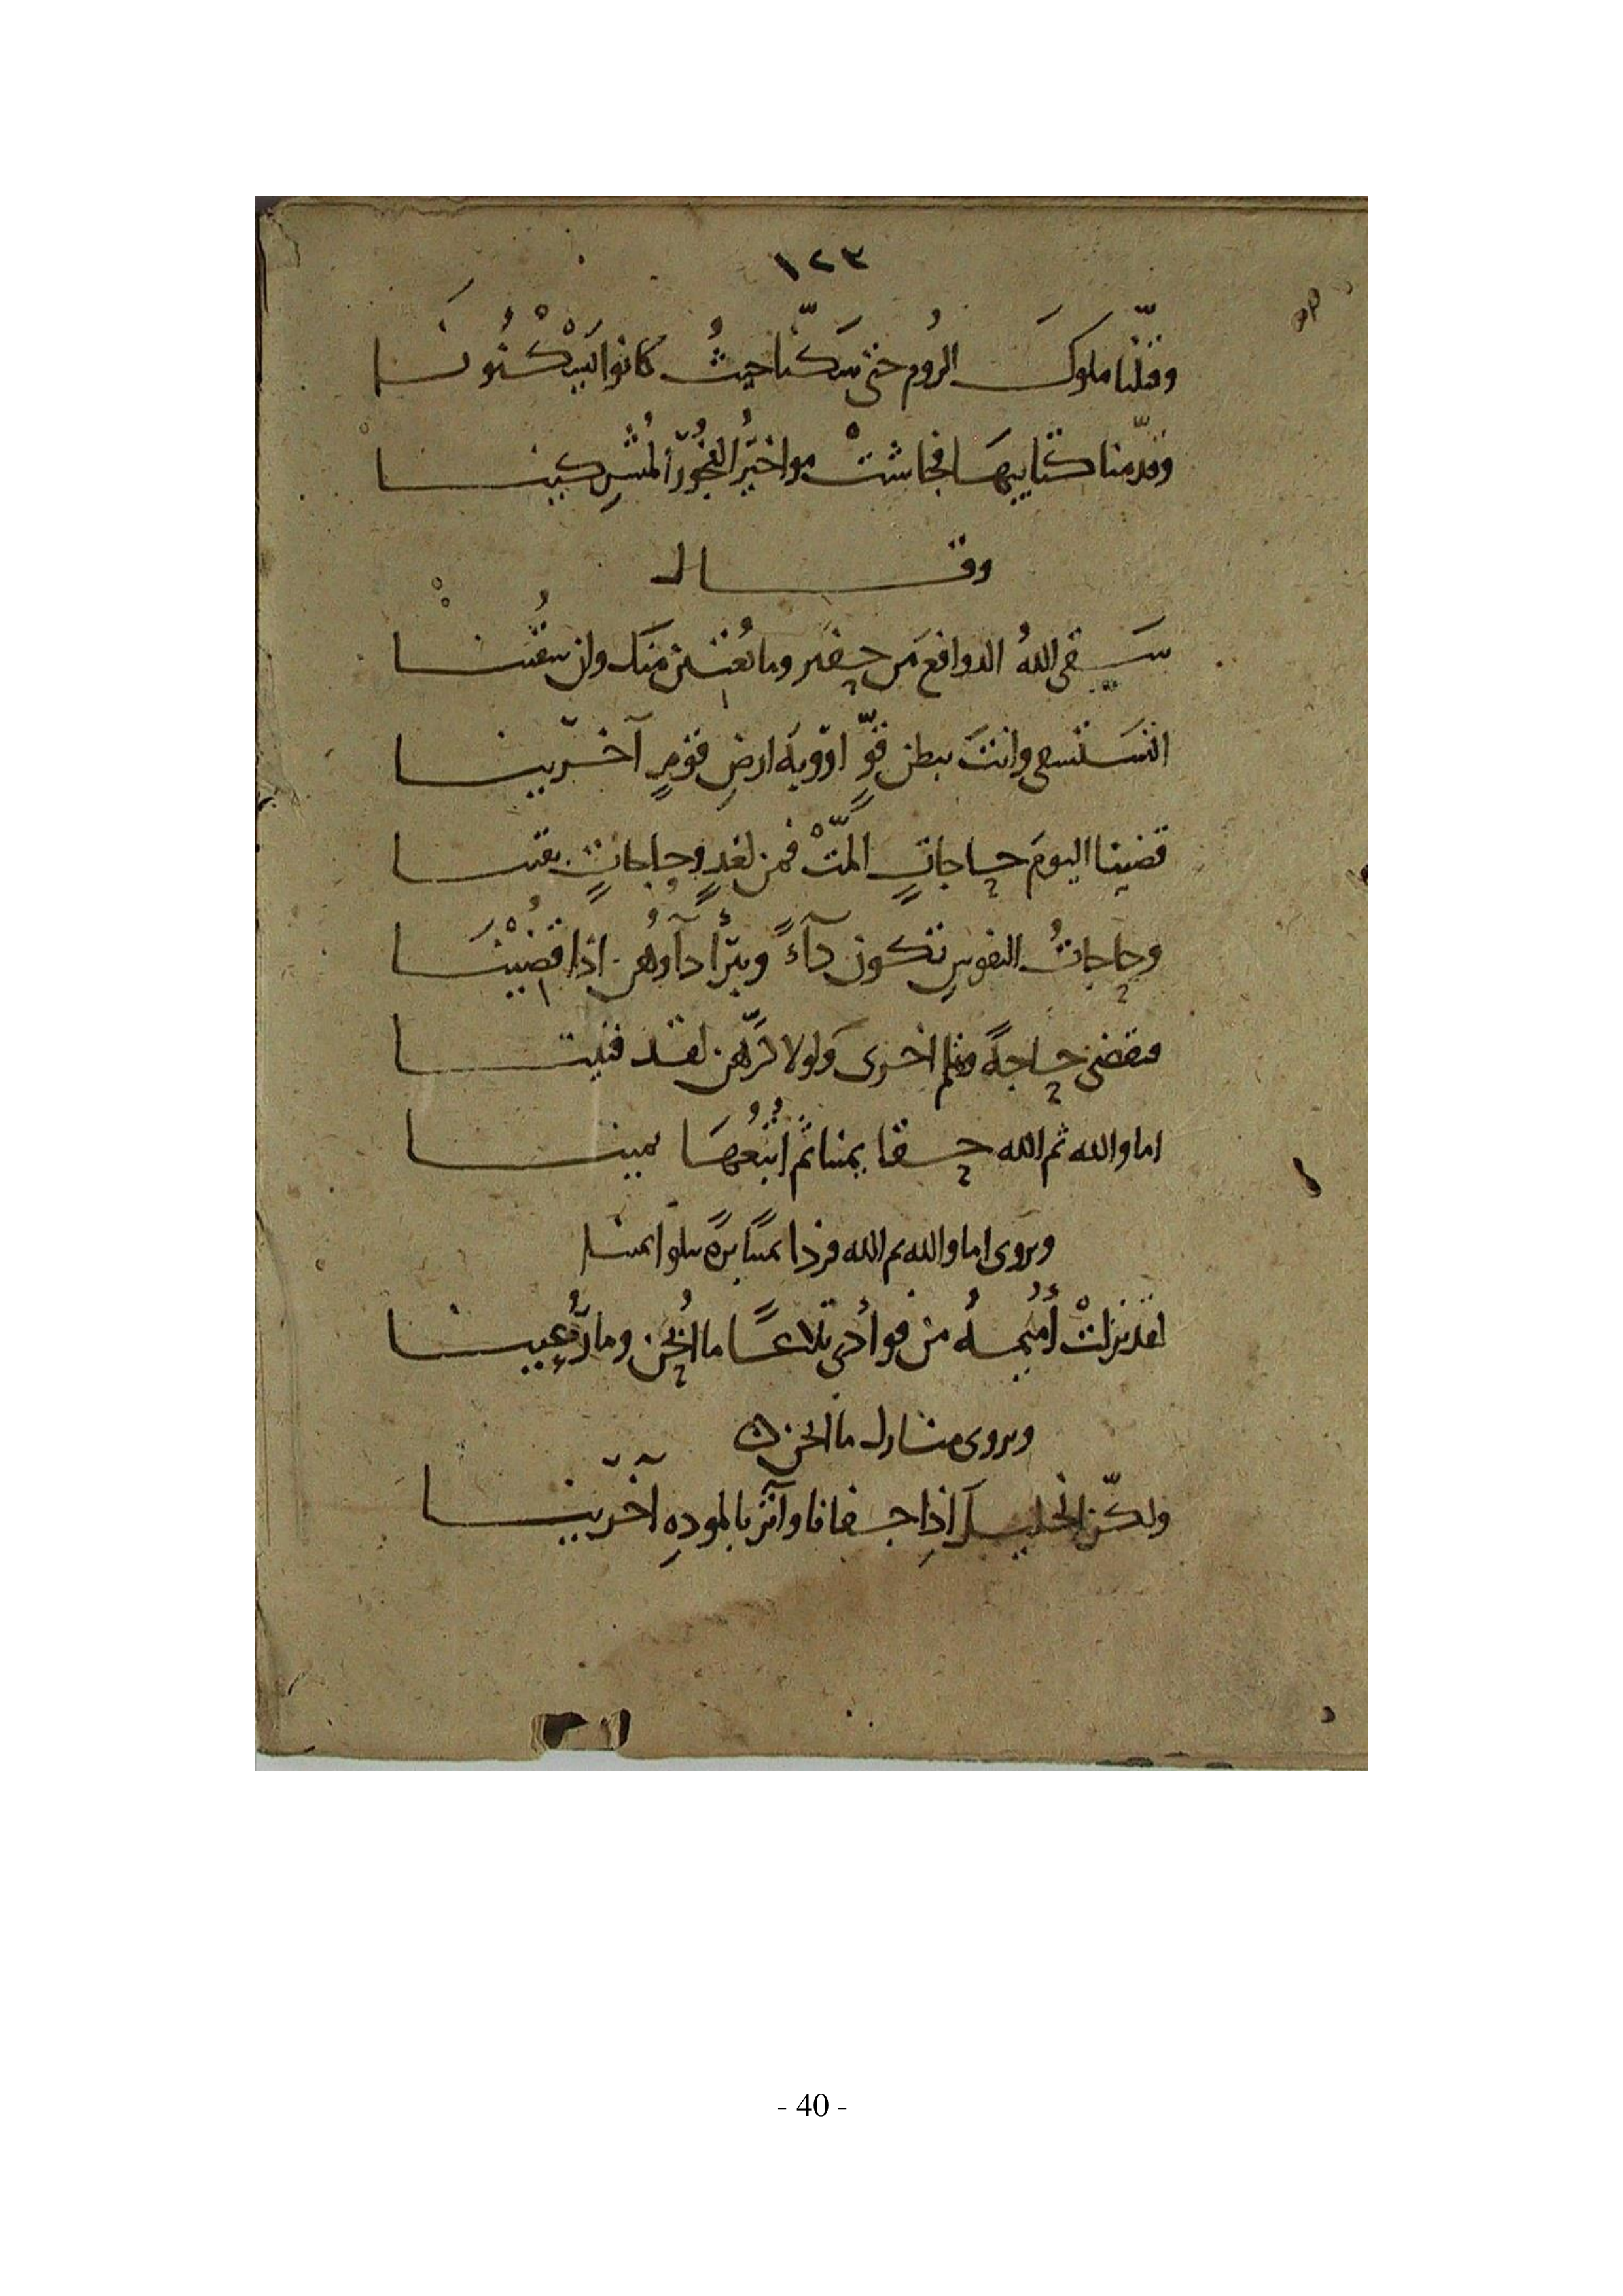 ١٢٣
وقتّلنا ملوكَ الرُوم حتى سَكنّا حيثُ كانوا يَسْكُنُونَا
وقدّمنا كتايبهَا فجاشتْ مواخيُر الفُجُور المُشرِكينا
وقال
سَقى اللهُ الدوافع من حفير وما يُغنين منك وان سُقينا
وانتَ ببطن قوٍّ ارضِ قومٍ آخرينا
قضينا اليومَ حاجاتٍ المّتْ فمن لغدٍ وحاجاتٍ بقينا
وحاجاتُ النفوسِ تكون دآءً ويبرأ دآوُهن اذا قُضِيْنَا
فنقضى حاجةً وتلم اخرى ولولا كرّهن لقد فنينا
اما والله ثم الله حقا يمينا ثم اُتْبُعُهَا يمينا
ويروى اما والله ثم الله فردا يمينًا برةً تتلو ايمينا
لقد نزلتْ أُميمةُ من فوأدى تلاعًا ما اُبحن وما رُعينا
ويروى منازل ما ابحن ه
ولكنّ الخليلَ اذِا جفانا وآثر بالمودهِ آخَرينا
- 40 -